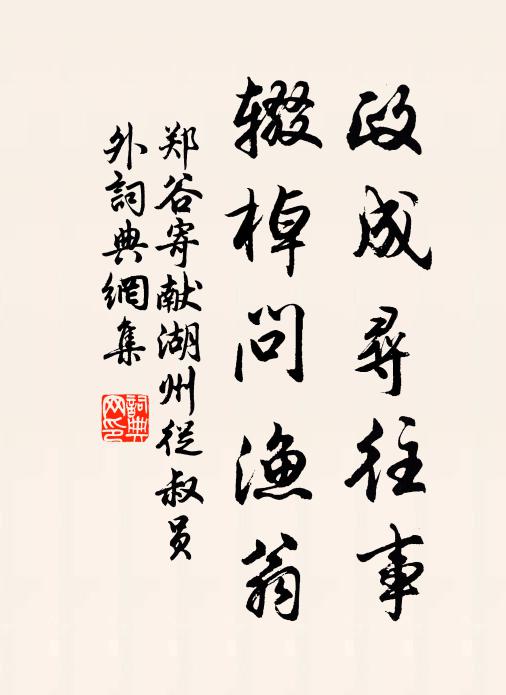 政成尋往事
辍棹问渔翁
郑谷寄献湖州從叔员
外詞典網集
詞典
网印